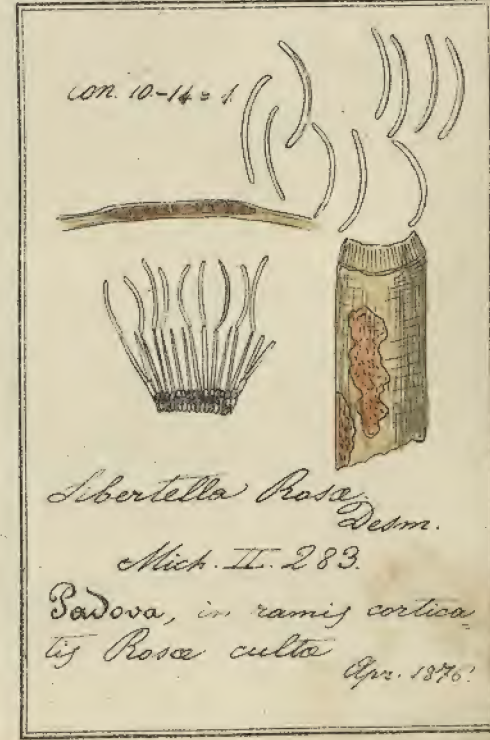 con. 10-14 = 1
Libertella Rosæ
Desm.
Mich. II. 283.
Padova, in ramis cortica=
tis Rosæ cultæ
Apr. 1876.